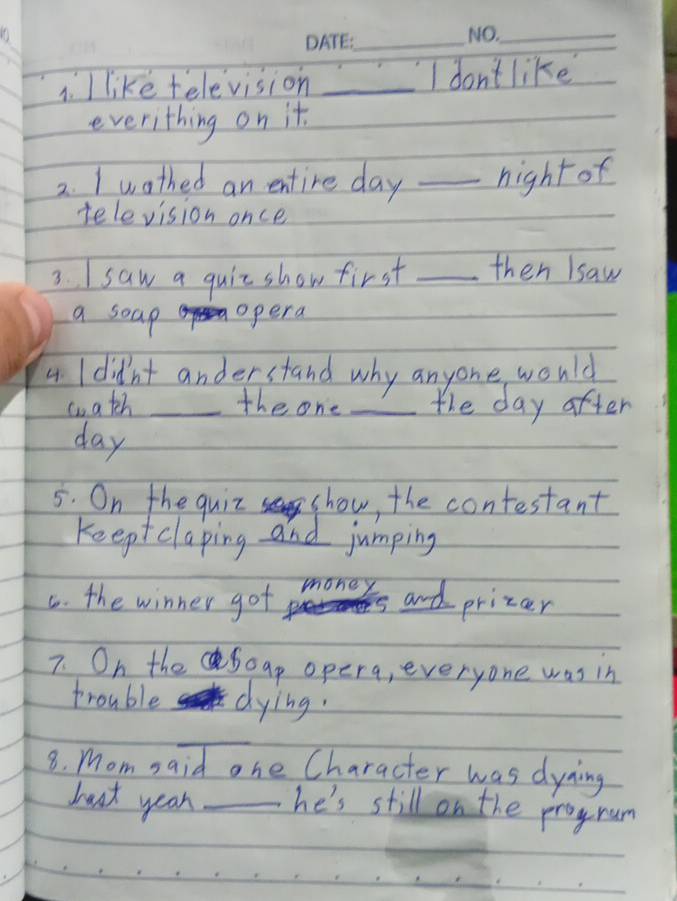 DATE:__________ NO.__________
1. I like television ______ I dont like
everithing on it.
2. I wathed an entire day ____ night of
television once
3. I saw a quiz show first ____ then I saw
a soap opera
4. I did'nt anderstand why anyone would
watch ____ the one ____ the day after
day
5. On the quiz show, the contestant
Keept claping and jumping
6. the winner got money and prizer
7. On the soap opera, everyone was in
trouble dying.
8. Mom said one Character was dyaing
last year ____ he's still on the program